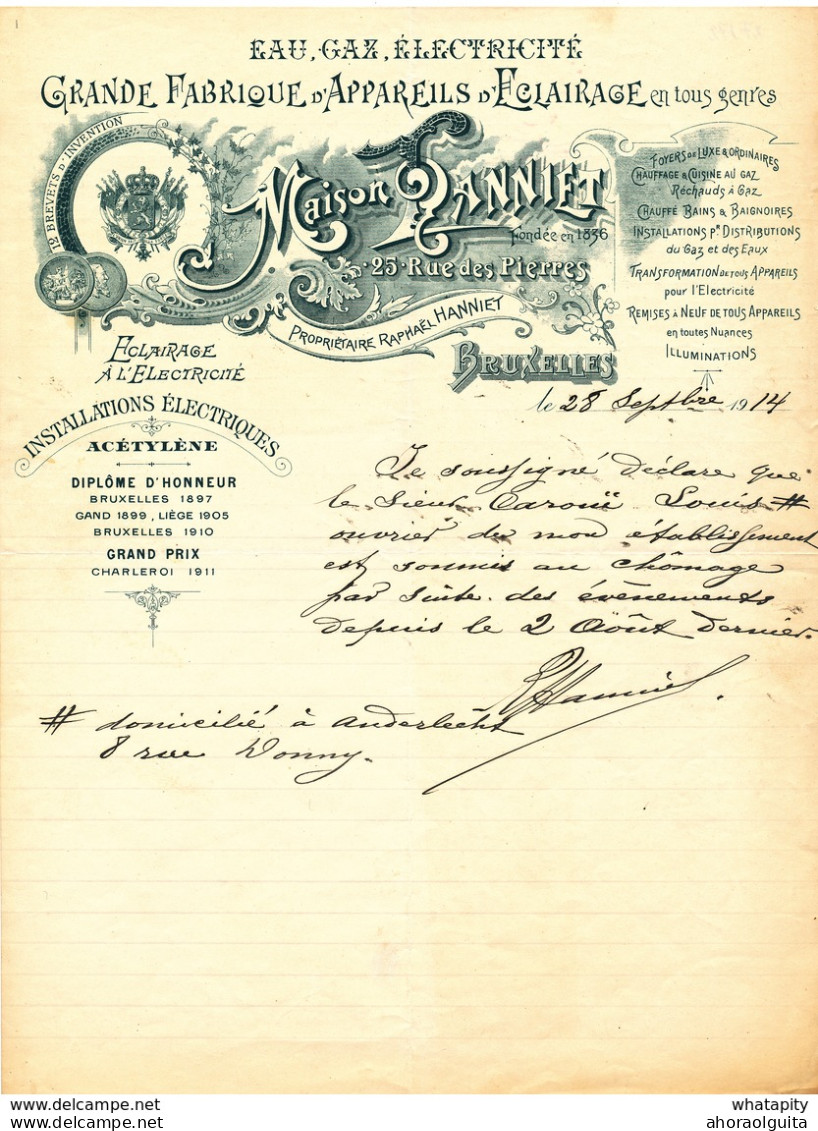 EAU, GAZ, ÉLECTRICITÉ
GRANDE FABRIQUE D'APPAREILS D'ECLAIRAGE en tous genres
12 BREVETS D'INVENTION
Maison HANNIET
Fondée en 1836
25 Rue des Pierres
PROPRIÉTAIRE RAPHAËL HANNIET
BRUXELLES
FOYERS DE LUXE & ORDINAIRES
CHAUFFAGE & CUISINE AU GAZ
Réchauds à Gaz
CHAUFFE BAINS & BAIGNOIRES
INSTALLATIONS Pr DISTRIBUTIONS
du Gaz et des Eaux
TRANSFORMATION DE TOUS APPAREILS
pour l'Electricité
REMISES À NEUF DE TOUS APPAREILS
en toutes Nuances
ILLUMINATIONS
ECLAIRAGE
À L'ELECTRICITÉ
INSTALLATIONS ÉLECTRIQUES
ACÉTYLÈNE
DIPLÔME D'HONNEUR
BRUXELLES 1897
GAND 1899, LIÈGE 1905
BRUXELLES 1910
GRAND PRIX
CHARLEROI 1911
le 28 Septbre 1914
Je soussigné déclare que
le sieur Caroüi Louis #
ouvrier de mon établissement
est soumis au chômage
par suite des évènements
depuis le 2 Août dernier.
RHanniet
# domicilié à Anderlecht
8 rue Wonny.
whatapity
ahoraolguita